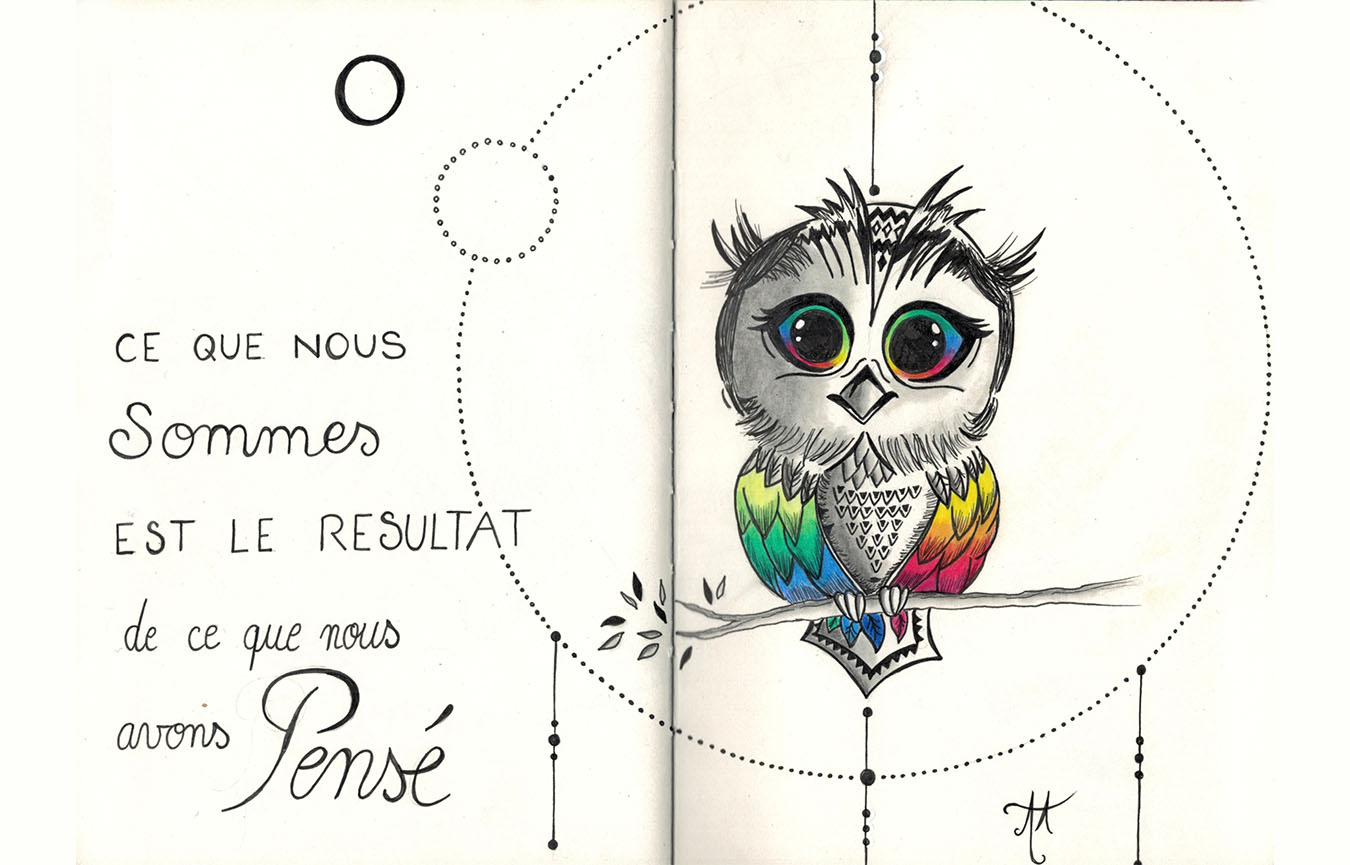 O
CE QUE NOUS
Sommes
EST LE RESULTAT
de ce que nous
avons Pensé